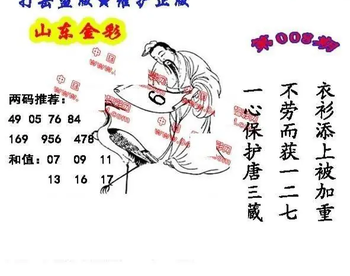 打击盗版 维护正版
山东金彩
第008期
两码推荐:
49 05 76 84
169 956 478
和值: 07 09 11
13 16 17
6
衣衫添上被加重
不劳而获一二七
一心保护唐三藏